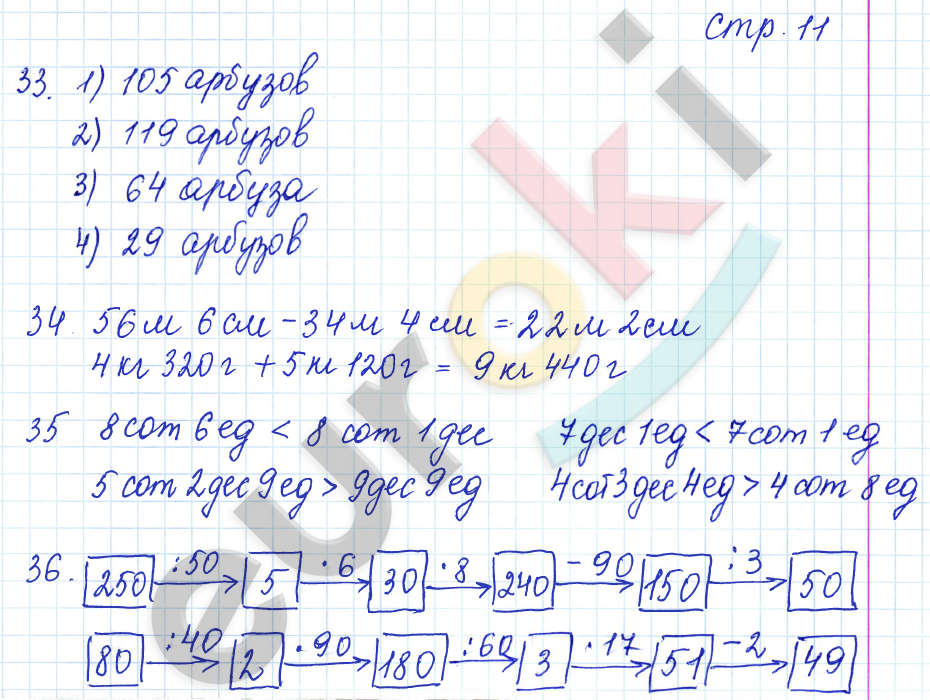 стр. 11
33. 1) 105 арбузов
2) 119 арбузов
3) 64 арбуза
4) 29 арбузов
34. 56 м 6 см - 34 м 4 см = 22 м 2 см
4 кг 320 г + 5 кг 120 г = 9 кг 440 г
35 8 сот 6 ед < 8 сот 1 дес 7 дес 1 ед < 7 сот 1 ед
5 сот 2 дес 9 ед > 9 дес 9 ед 4 сот 3 дес 4 ед > 4 сот 8 ед
36. 250 :50 5 ·6 30 ·8 240 -90 150 :3 50
80 :40 2 ·90 180 :60 3 ·17 51 -2 49
euroki